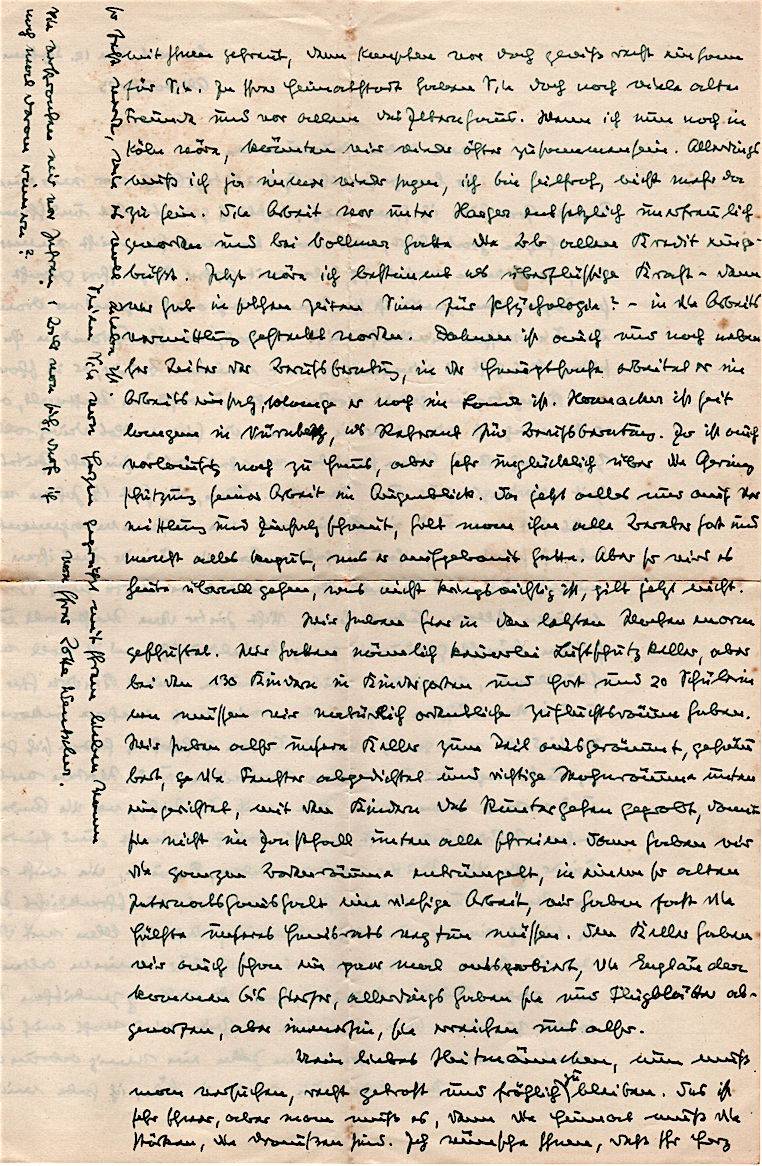 mit Ihnen gefreut, denn Kempten war doch gewiß recht einsam
für Sie. In Ihrer Heimatstadt haben Sie doch noch viele alte
Freunde und vor allem das Elternhaus. Wenn ich nun noch in
Köln wäre, könnten wir wieder öfter zusammensein. Allerdings
muß ich ja immer wieder sagen, ich bin heilfroh, nicht mehr da
zu sein. Die Arbeit war unter Haeger entsetzlich unerfreulich
geworden und bei Vollmer hatte die Bb allen Kredit einge-
büßt. Jetzt wäre ich bestimmt als überflüssige Kraft – denn
wer hat in solchen Zeiten Sinn für Psychologie? – in die Arbeits
vermittlung gesteckt worden. Dahmen ist auch nur noch neben
her Leiter der Berufsberatung, in der Hauptsache arbeitet er im
Arbeitseinsatz, solange er noch im Lande ist. Hornacher ist seit
langem in Nürnberg, als Referent für Berufsberatung. Er ist auch
vorläufig noch zu Haus, aber sehr unglücklich über die Gering
schätzung seiner Arbeit im Augenblick. Da jetzt alles nur auf Ver
mittlung und Einsatz schaut, holt man ihm alle Berater fort und
macht alles kaputt, was er aufgebaut hatte. Aber so wird es
heute überall gehen, was nicht kriegswichtig ist, gilt jetzt nicht.
Wir haben hier in den letzten Wochen enorm
geschuftet. Wir hatten nämlich keinerlei Luftschutzkeller, aber
bei den 130 Kindern in Kindergarten und Hort und 20 Schülerin
nen müssen wir natürlich ordentliche Zufluchtsräume haben.
Wir haben also unsere Keller zum Teil ausgeräumt, gesäu
bert, die Fenster abgedichtet und richtige Wohnräume unten
eingerichtet, mit den Kindern das Runtergehen geprobt, damit
sie nicht im Ernstfall unten alle schreien. Dann haben wir
die ganzen Bodenräume entrümpelt, in einem so alten
Internatshaushalt eine riesige Arbeit, wir haben fast die
Hälfte unseres Hausrats wegtun müssen. Den Keller haben
wir auch schon ein paar mal ausprobiert, die Engländer
kommen bis hierher, allerdings haben sie nur Flugblätter ab-
geworfen, aber immerhin, sie erreichen uns also.
Mein liebes Heitmännchen, nun muß
man versuchen, recht getrost und fröhlich zu bleiben. Das ist
sehr schwer, aber man muß es, denn die Heimat muß die
stärken, die draußen sind. Ich wünsche Ihnen, daß Ihr Herz
so fest werde,
Seien Sie von Herzen gegrüßt mit Ihrem lieben Mann
von Ihrer Lotte